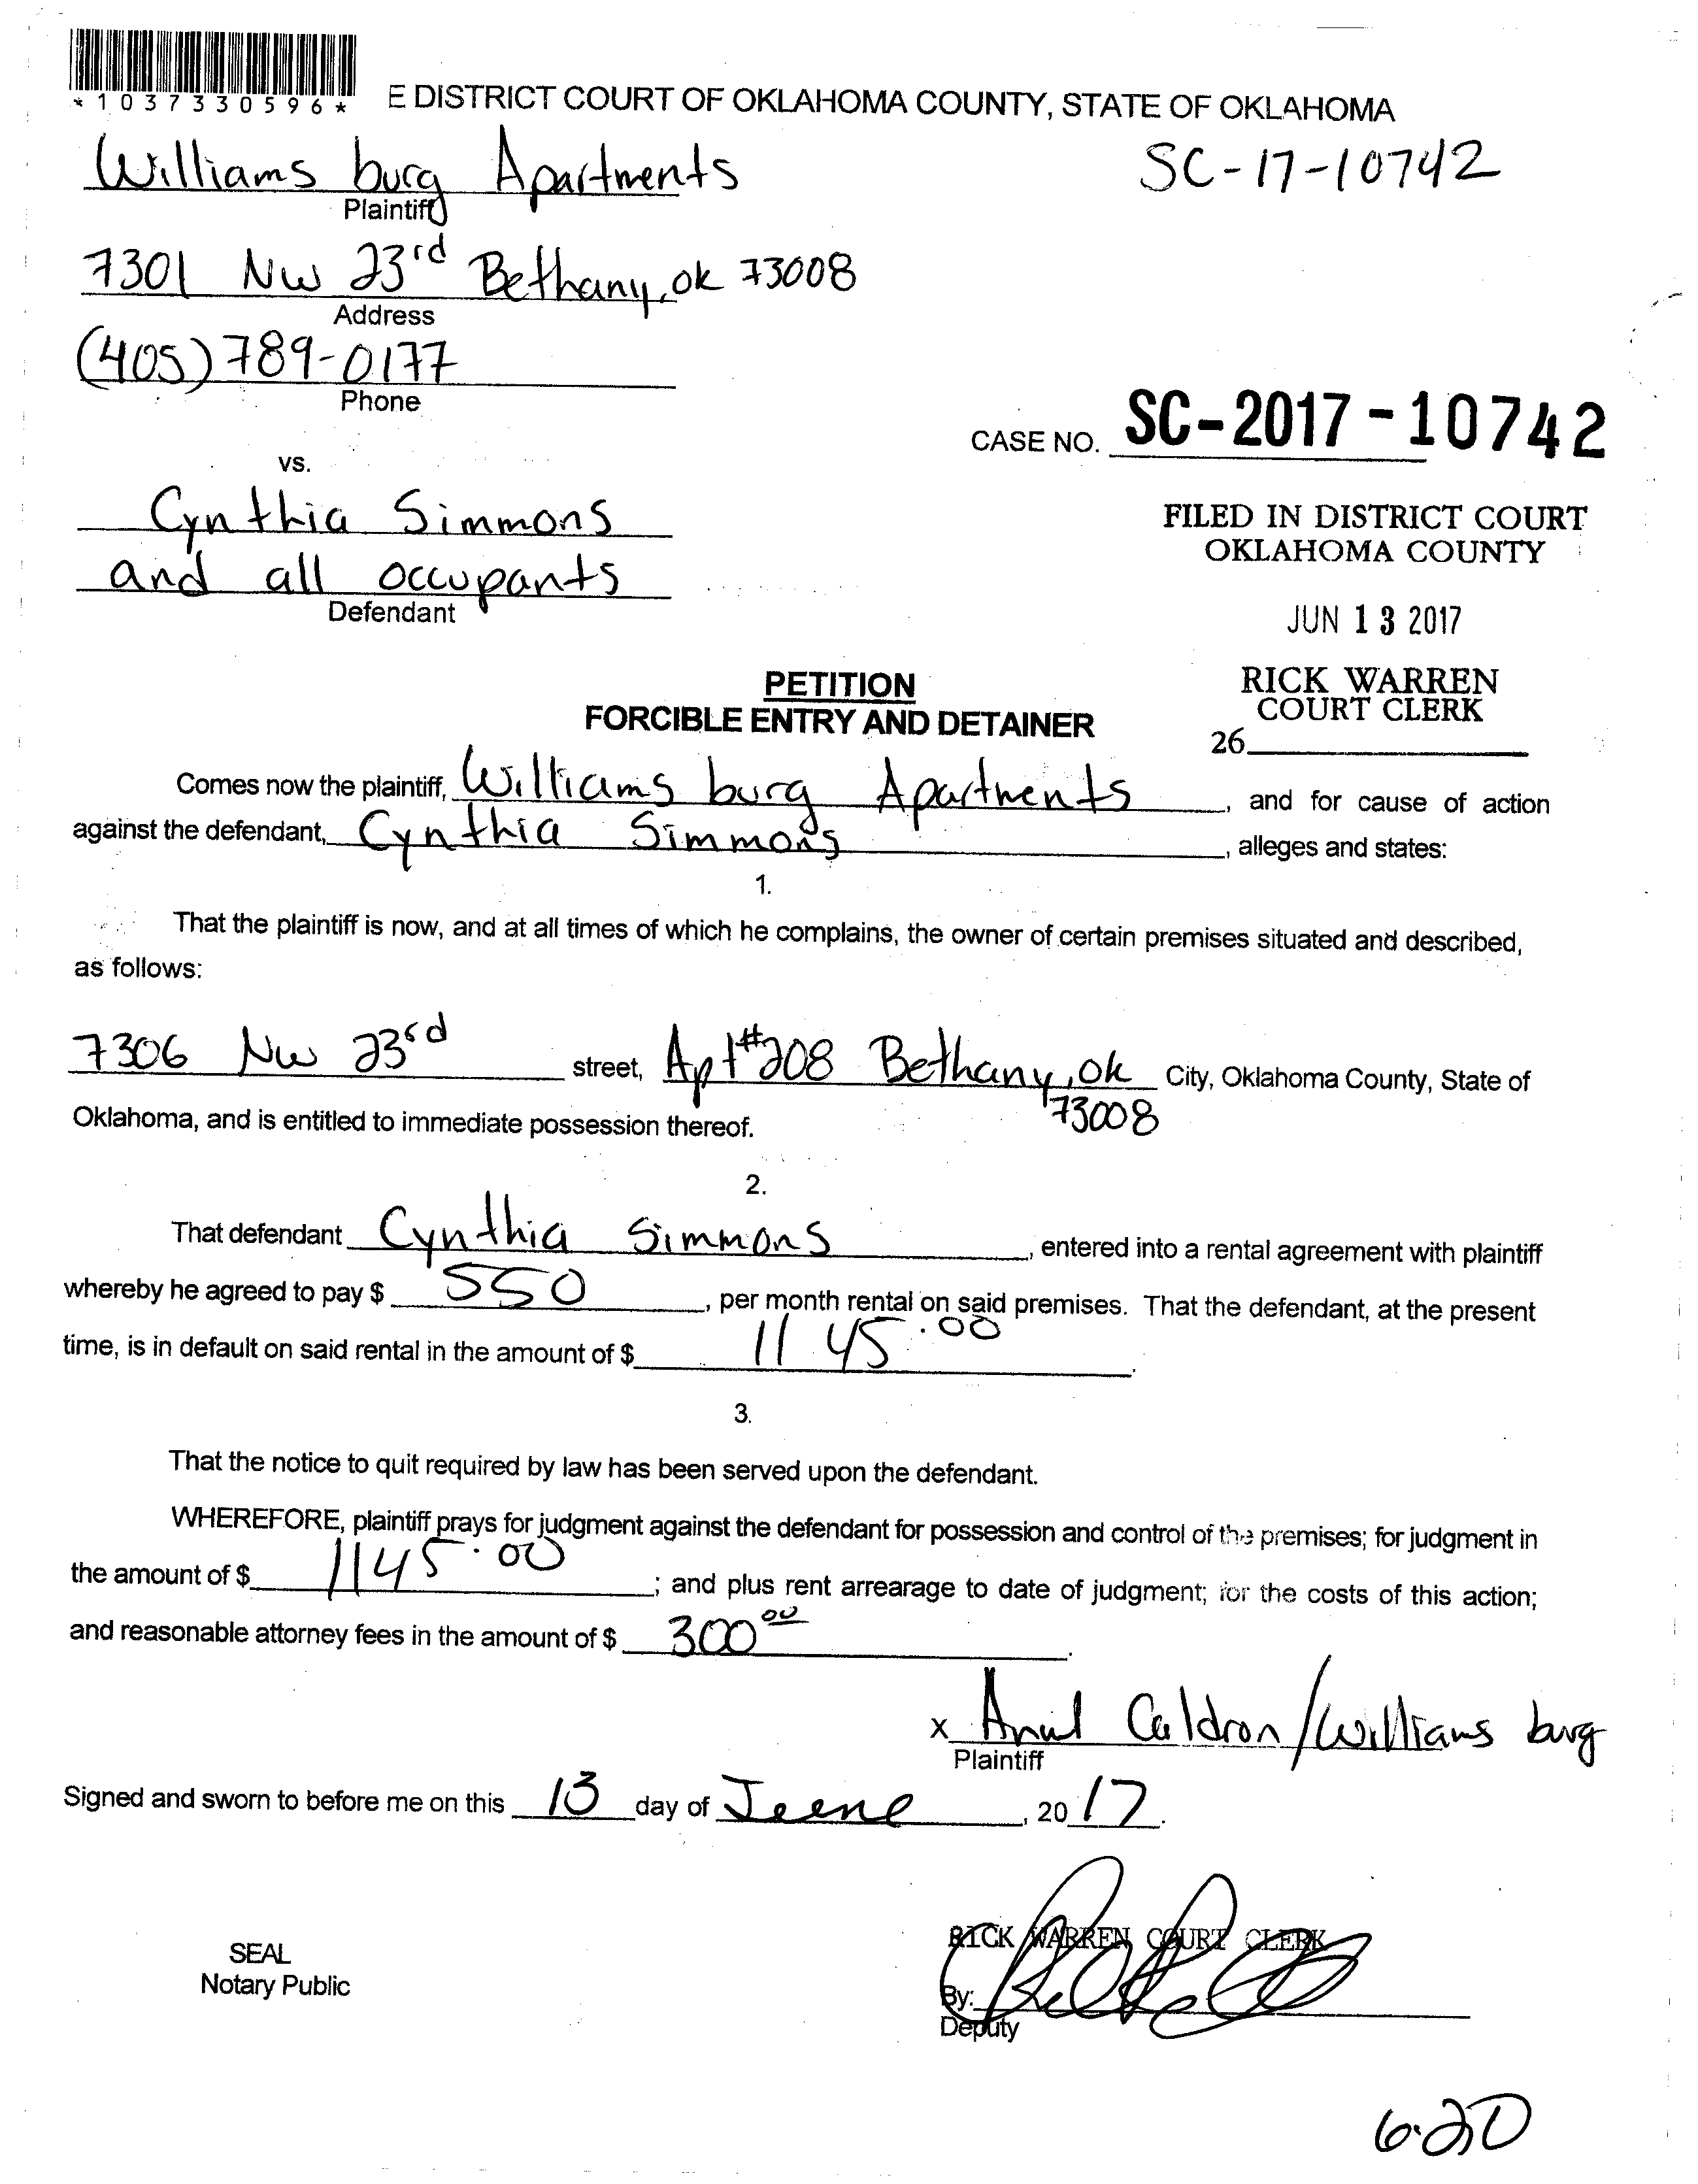 *1037330596*
E DISTRICT COURT OF OKLAHOMA COUNTY, STATE OF OKLAHOMA
Williams burg Apartments
SC-17-10742
Plaintiff
7301 NW 23rd Bethany, ok 73008
Address
(405) 789-0177
Phone
CASE NO. SC-2017-10742
vs.
Cynthia Simmons
and all occupants
Defendant
FILED IN DISTRICT COURT
OKLAHOMA COUNTY
JUN 13 2017
RICK WARREN
COURT CLERK
26
PETITION
FORCIBLE ENTRY AND DETAINER
Comes now the plaintiff, Williams burg Apartments, and for cause of action
against the defendant, Cynthia Simmons, alleges and states:
1.
That the plaintiff is now, and at all times of which he complains, the owner of certain premises situated and described,
as follows:
7306 NW 23rd street, Apt #208 Bethany, ok City, Oklahoma County, State of
73008
Oklahoma, and is entitled to immediate possession thereof.
2.
That defendant Cynthia Simmons, entered into a rental agreement with plaintiff
whereby he agreed to pay $ 550, per month rental on said premises. That the defendant, at the present
time, is in default on said rental in the amount of $ 1145.00.
3.
That the notice to quit required by law has been served upon the defendant.
WHEREFORE, plaintiff prays for judgment against the defendant for possession and control of the premises; for judgment in
the amount of $ 1145.00; and plus rent arrearage to date of judgment; for the costs of this action;
and reasonable attorney fees in the amount of $ 300 00.
X Caldron/Williams burg
Plaintiff
Signed and sworn to before me on this 13 day of June, 20 17.
SEAL
Notary Public
RICK WARREN COURT CLERK
By:
Deputy
6.20